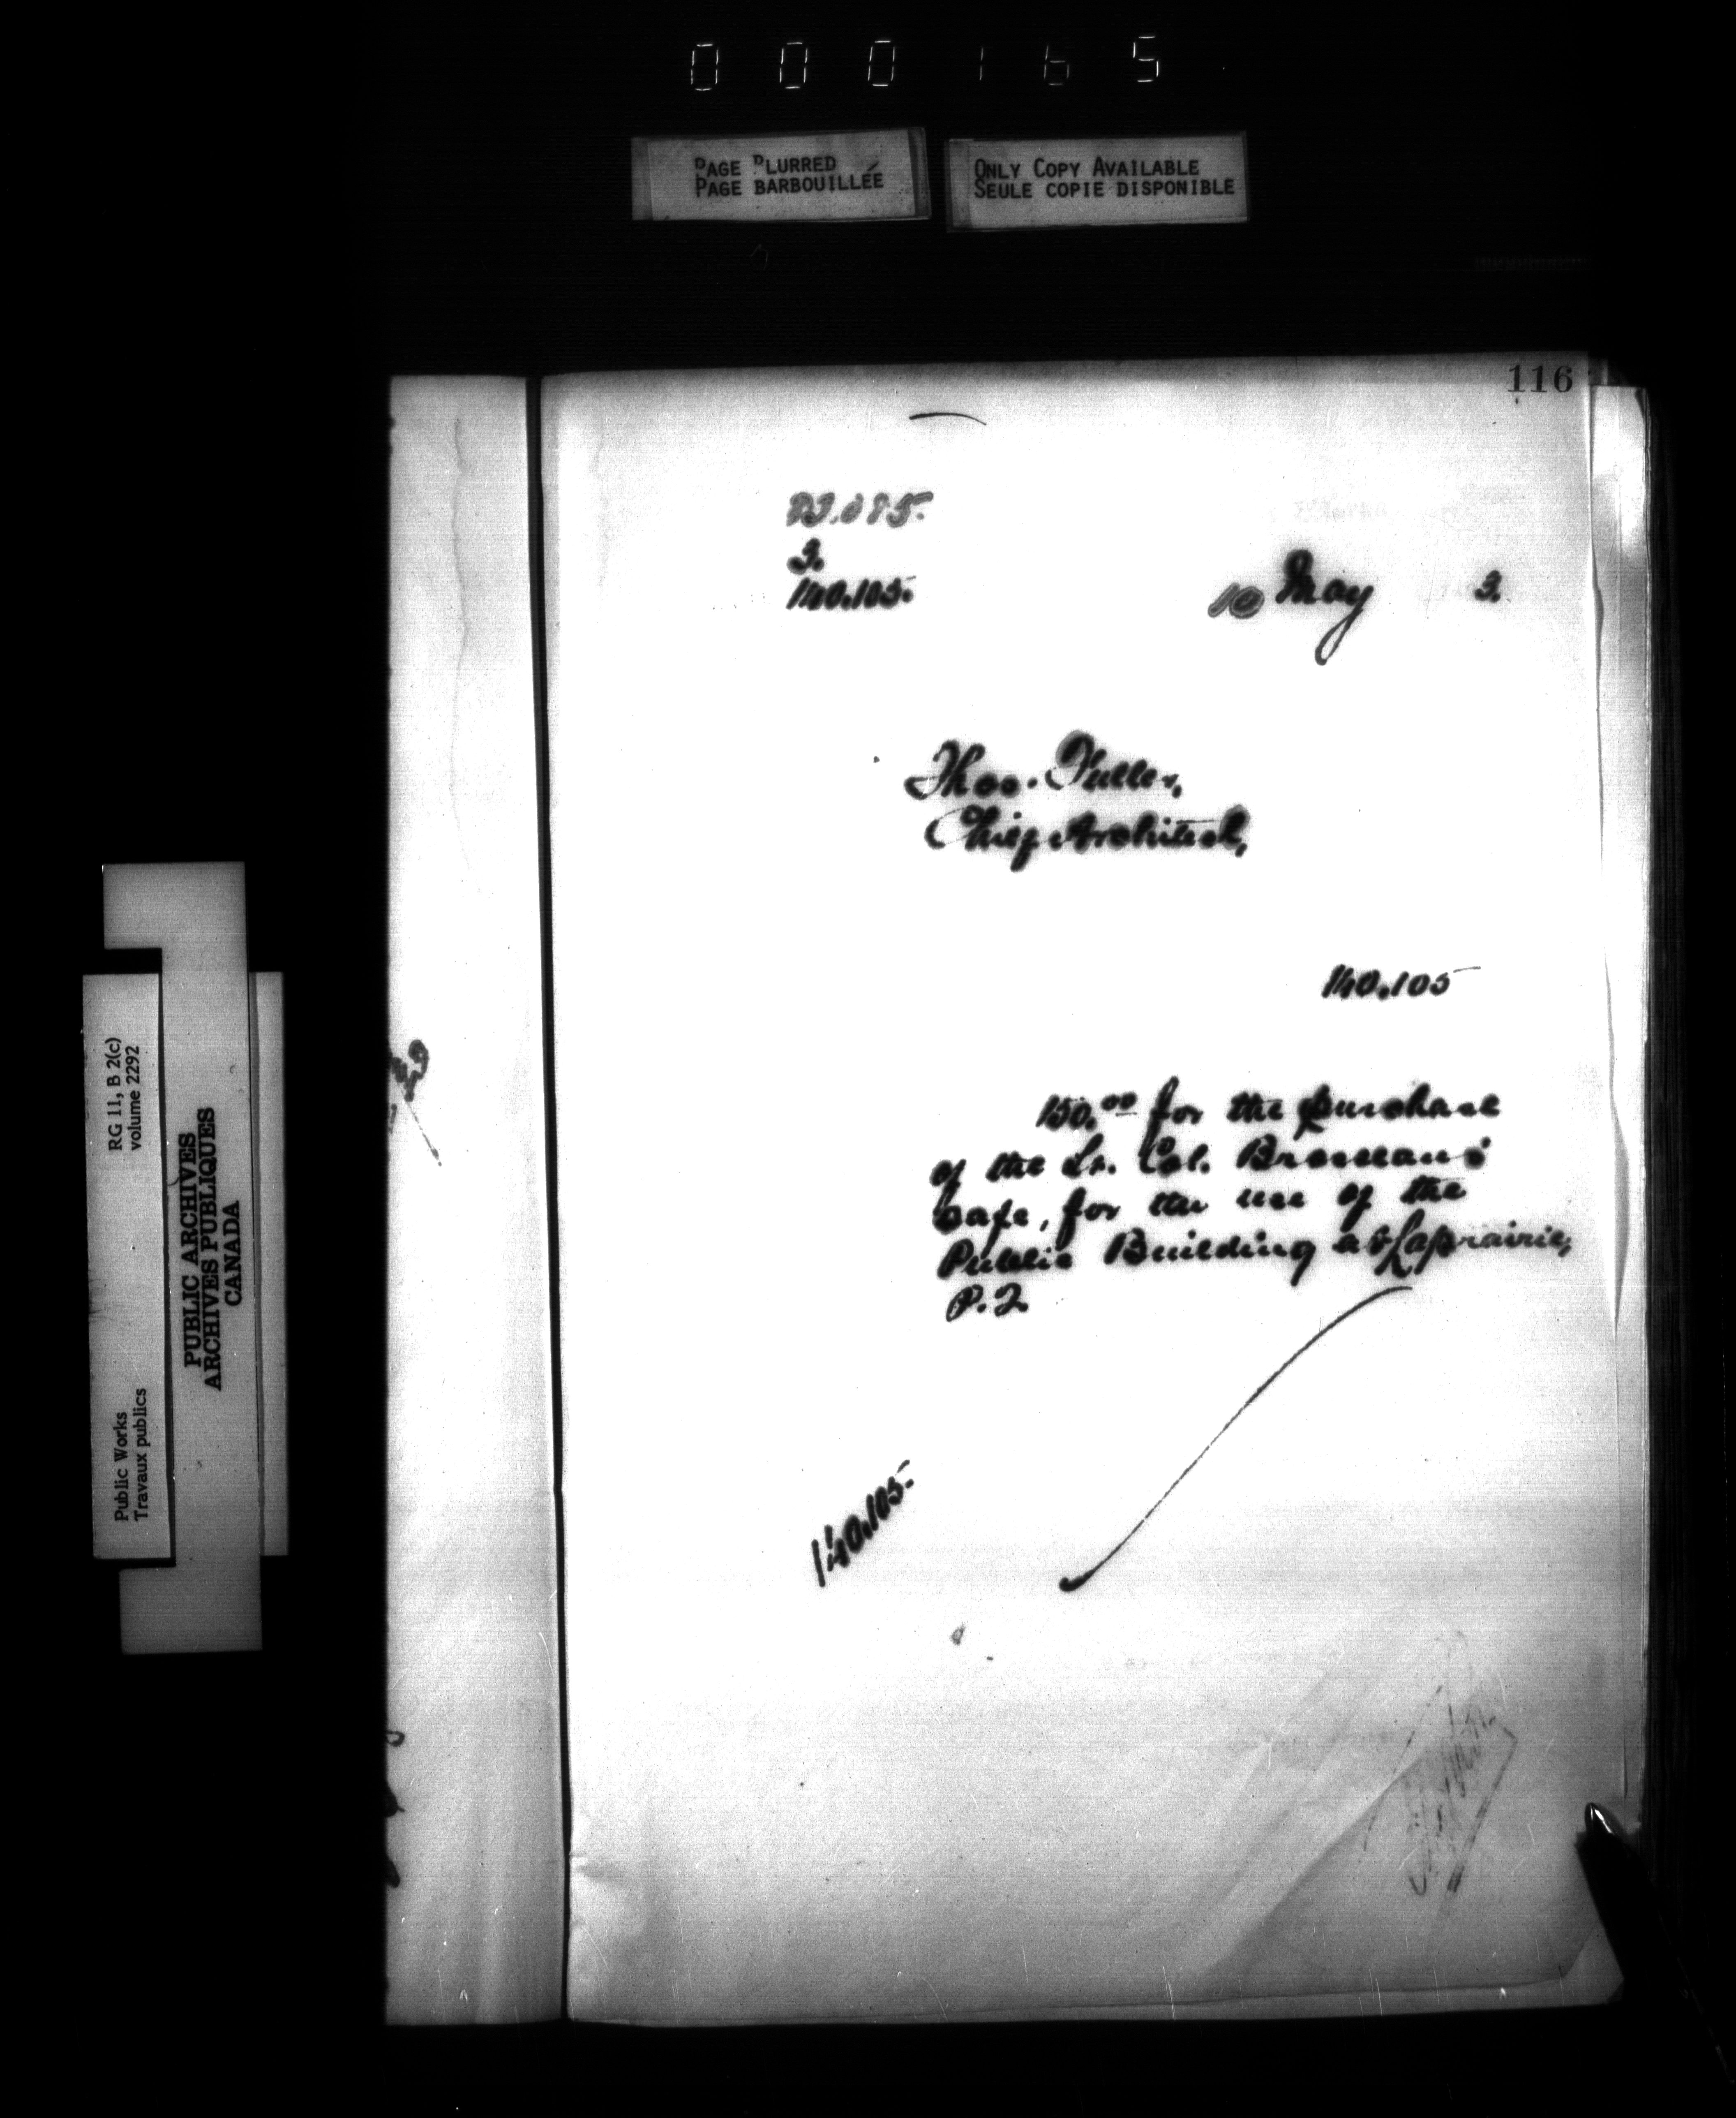 000165
PAGE BLURRED
PAGE BARBOUILLÉE
ONLY COPY AVAILABLE
SEULE COPIE DISPONIBLE
116
3.
140.105.
10 May 3.
Thos. Fuller,
Chief Architect,
140.105
150.00 for the purchase
of the Lt. Col. Brosseau's
safe, for the use of the
Public Building at Laprairie,
P. Q.
140.105.
RG 11, B 2(c)
volume 2292
PUBLIC ARCHIVES
ARCHIVES PUBLIQUES
CANADA
Public Works
Travaux publics